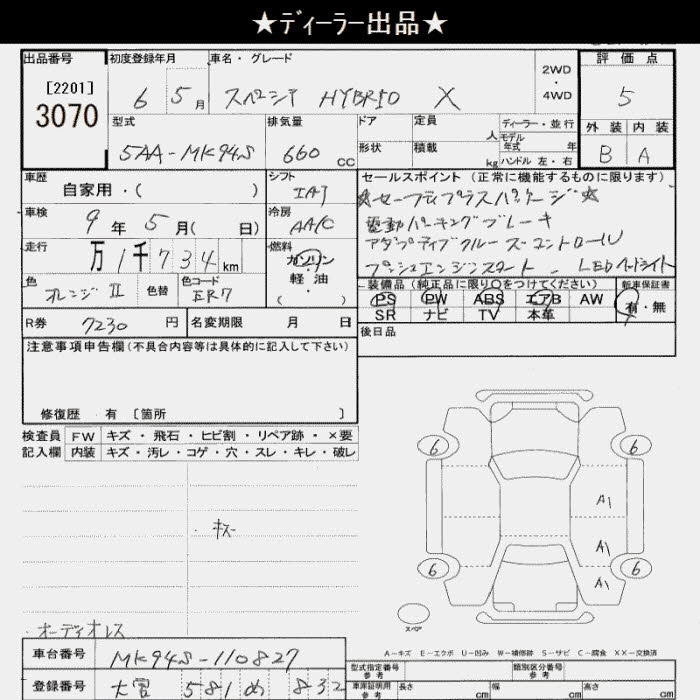 ★ディーラー出品★
出品番号 初度登録年月 車名・グレード 2WD ・ 4WD 評価点
[2201] 3070 6 5月 スペーシア HYBRID X 5
型式 排気量 ドア 定員 人 ディーラー・並行 外装 内装
5AA-MK94S 660 CC 形状 積載 kg モデル年式 年 ハンドル 左・右 B A
車歴 シフト セールスポイント (正常に機能するものに限ります)
自家用・( ) IAT ★セーフティプラスパッケージ★
車検 冷房 電動パーキングブレーキ
9年 5月( 日) AA/C アダプティブクルーズコントロール
走行 燃料 プッシュエンジンスタート、LEDヘッドライト
万 1千 7 3 4 km ガソリン・軽油 ( )
色 オレンジII 色替 色コード 装備品(純正品に限り○をつけてください) 新車保証書
PS PW ABS エアB AW 有・無
SR ナビ TV 本革
R券 7230 円 名変期限 月 日 後日品
注意事項申告欄(不具合内容等は具体的に記入して下さい)
修復歴 有 〔箇所 〕
検査員 FW キズ・飛石・ヒビ割・リペア跡・×要
記入欄 内装 キズ・汚レ・コゲ・穴・スレ・キレ・破レ
6 6
A1
・キズー
A1
6 6
A1
スペア
・オーディオレス
A−キズ E−エクボ U−凹み W−補修跡 S−サビ C−腐食 XX−交換済
車台番号 MK94S-110827 型式指定番号 参考 類別区分番号 参考
登録番号 大宮 581 め 832 車庫証明用 参考 長さ cm 幅 cm 高さ cm